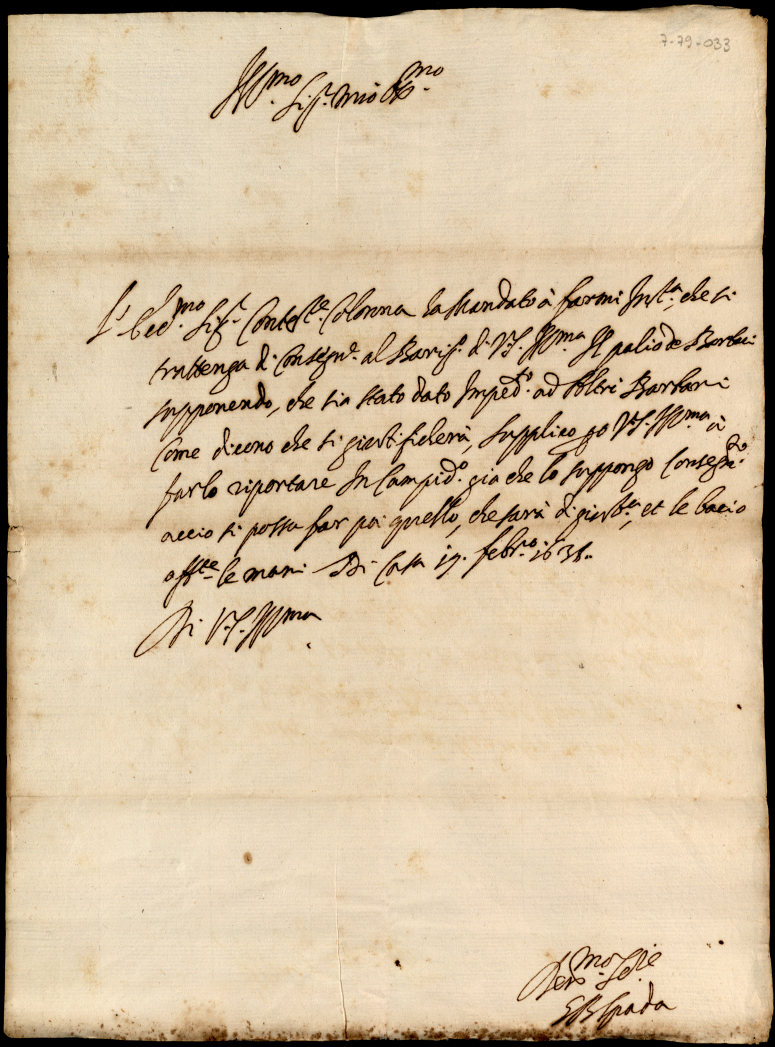 7-79-033
Ill.mo Sig.r mio Oss.mo
L'Ecc.mo Sig.r Contest.e Colonna ha mandato à farmi Inst.a, che si
trattenga di Consegn.e al Barig.o di V.S. Ill.ma Il palio de Barbari
supponendo, che sia stato dato Imped.to ad Barbari
Come dicono che si giustificherà, supplico V.S. Ill.ma à
farlo riportare In Campid.o già che lo suppongo Consegn.to
accio si possa far poi quello, che sarà di giust.a, et le bacio
aff.te le mani Di Casa 19. febr.o
Di V.S. Ill.ma
Ser.re
Spada